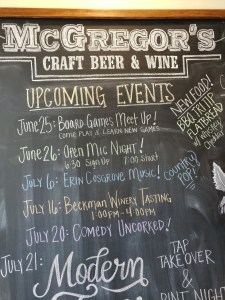 McGREGOR'S
CRAFT BEER & WINE
UPCOMING EVENTS
JUNE 25: BOARD GAMES MEET UP!
COME PLAY & LEARN NEW GAMES
JUNE 26: OPEN MIC NIGHT!
6:30 SIGN UP 7:00 START
JULY 6: ERIN COSGROVE MUSIC!
COUNTRY
POP!
JULY 16: BECKMAN WINERY TASTING
1:00PM-4:00PM
JULY 20: COMEDY UNCORKED!
JULY 21:
Modern
NEW FOOD!
BBQ
FLATBREAD
TAP
TAKEOVER
&
PINT NIGHT